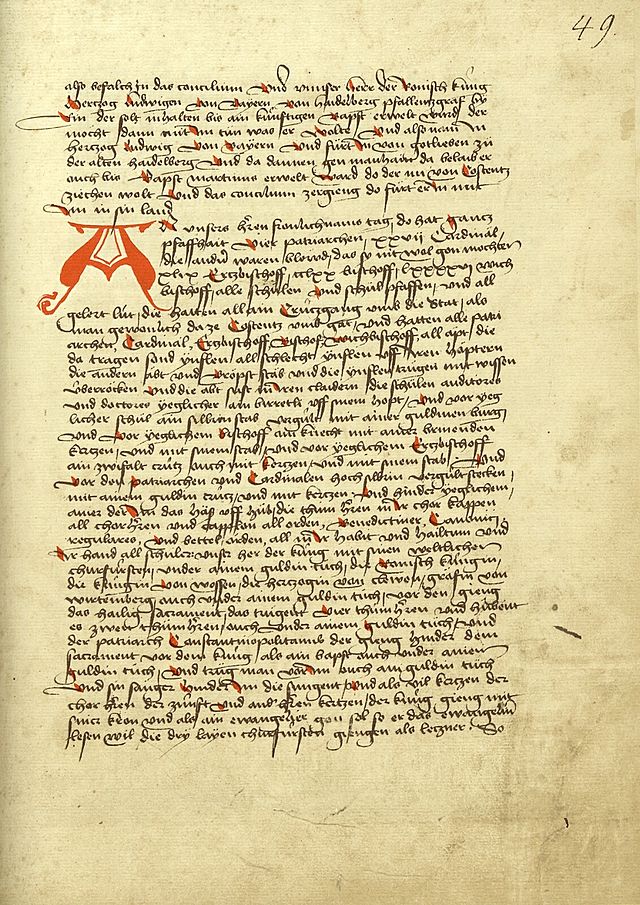 49.
also befalch in das concilium Und unnser herr der Romisch kung
Hertzog Ludwigen von Bayern von haidelberg pfallentzgraf by
Rin der solt in halten bis ain künftigen Bapst erwelt wurd der
mocht dann mit im tün was er wolte Und also nam in
hertzog Ludwig von Bayern und fürt in von gotlieben zü
der alten haidelberg und da dannen gen manhain da belaib er
ouch bis Bapst martinus erwelt ward do der nu von Costentz
ziechen wolt Und das concilium zergieng do fürt er in mit
im in sin land
A unsers herren fronlichnams tag do hat gantz
pfaffhait vier patriarchen xxvij Cardinal
die andern waren blowd das sy nit wol gon mochten
xlix Ertzbischoff cclxx bischoff wich
bischoff alle schülen und schül pfaffen und all
gelert lüt die hatten all ain Crützgang umb die Stat als
man gewonlich da ze Costentz umb gat und hatten alle patri
archen Cardinal Ertzbischoff Bischof wichbischoff all apt die
da tragen sond ynflen all schlecht ynflen uff iren höptern
die andern äbt und pröpst stäb und die ynflen trügen mit wissen
überröcken und die abt sust in iren claidern die schülen auditores
und doctores yeglicher ain birretli uff sinem hopt und vor yeg
licher schül ain silbrin stab vergült mit ainer guldinen burg
und vor yeglichem bischoff ain knecht mit ainer brinenden
kertzen und mit sinem stab und vor yeglichem Ertzbischoff
ain zwifalt crütz ouch mit kertzen und mit sinem stab Und
vor den patriarchen und Cardinälen hoch silbrin vergült stecken
mit ainem guldin crütz und mit kertzen und hinder yeglichem
ainer der im das häs uff hüb die thüm herren in ir chor kappen
all chorherren und cappplon all orden Benedictiner Canonici
regulares und bettel orden all in ir habit und hailtum und
ir hand all schüler unser her der kung mit sinen weltlichen
churfürsten under ainem guldin tüch die Romisch kungin
die kungin von wossen die hertzogin von cleven gräfin von
wirtemberg ouch under ainem guldin tüch vor den gieng
das hailig sacrament das trügent vier thümherren und hübent
es zwen thümherren ouch under ainem guldin tüch und
der patriarch Constantinopolitanus der gieng hinder dem
sacrament vor dem kung als ain bapst ouch under ainem
guldin tüch und trüg man vor im ouch ain guldin tüch
und sin senger hinder im die sungent und als vil kertzen der
chor herren der zünfft und ander herren kertzen der kung gieng mit
siner kron und als ain ewangelier gon sol so er das ewangelium
lesen wil die dry layen churfürsten giengen als letzner So